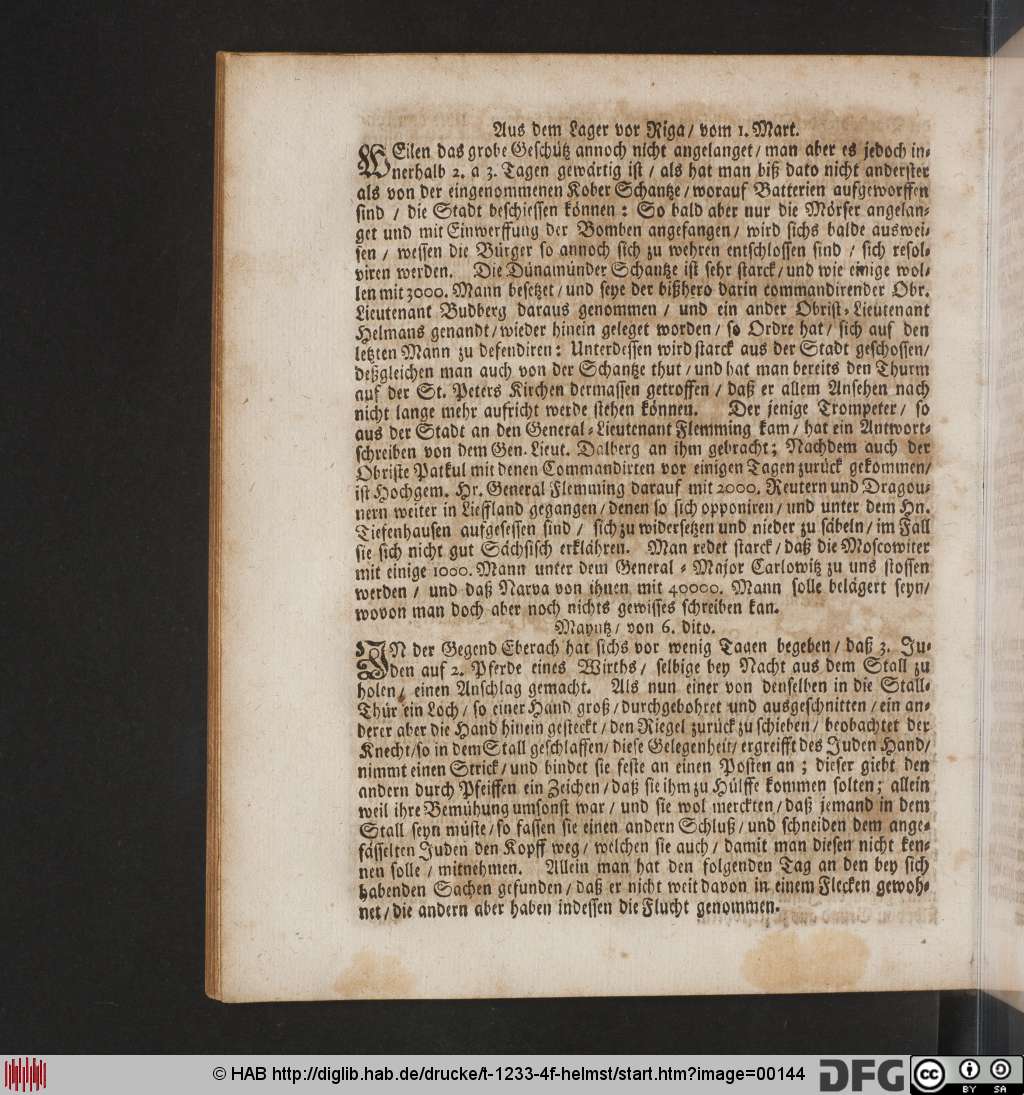 Aus dem Lager vor Riga / vom 1. Mart.
WEilen das grobe Geschütz annoch nicht angelanget / man aber es jedoch in-
nerhalb 2. a 3. Tagen gewärtig ist / als hat man biß dato nicht anderster
als von der eingenommenen Kober Schantze / worauf Batterien aufgeworffen
sind / die Stadt beschiessen können: So bald aber nur die Mörser angelan-
get und mit Einwerffung der Bomben angefangen / wird sichs balde auswei-
sen / wessen die Bürger so annoch sich zu wehren entschlossen sind / sich resol-
viren werden. Die Dünamünder Schantze ist sehr starck / und wie einige wol-
len mit 3000. Mann besetzet / und seye der bißhero darin commandirender Obr.
Lieutenant Budberg daraus genommen / und ein ander Obrist-Lieutenant
Helmans genandt / wieder hinein geleget worden / so Ordre hat / sich auf den
letzten Mann zu defendiren: Unterdessen wird starck aus der Stadt geschossen /
deßgleichen man auch von der Schantze thut / und hat man bereits den Thurm
auf der St. Peters Kirchen dermassen getroffen / daß er allem Ansehen nach
nicht lange mehr aufricht werde stehen können. Der jenige Trompeter / so
aus der Stadt an den General-Lieutenant Flemming kam / hat ein Antwort-
schreiben von dem Gen. Lieut. Dalberg an ihm gebracht; Nachdem auch der
Obriste Patkul mit denen Commandirten vor einigen Tagen zurück gekommen /
ist Hochgem. Hr. General Flemming darauf mit 2000. Reutern und Dragou-
nern weiter in Lieffland gegangen / denen so sich opponiren / und unter dem Hn.
Tiefenhausen aufgesessen sind / sich zu widersetzen und nieder zu säbeln / im Fall
sie sich nicht gut Sächsisch erklähren. Man redet starck / daß die Moscowiter
mit einige 1000. Mann unter dem General-Major Carlowitz zu uns stossen
werden / und daß Narva von ihnen mit 40000. Mann solle belägert seyn /
wovon man doch aber noch nichts gewisses schreiben kan.
Mayntz / von 6. dito.
IN der Gegend Eberach hat sichs vor wenig Tagen begeben / daß 3. Ju-
den auf 2. Pferde eines Wirths / selbige bey Nacht aus dem Stall zu
holen / einen Anschlag gemacht. Als nun einer von denselben in die Stall-
Thür ein Loch / so einer Hand groß / durchgebohret und ausgeschnitten / ein an-
derer aber die Hand hinein gesteckt / den Riegel zurück zu schieben / beobachtet der
Knecht / so in dem Stall geschlaffen / diese Gelegenheit / ergreifft des Juden Hand /
nimmt einen Strick / und bindet sie feste an einen Posten an; dieser giebt den
andern durch Pfeiffen ein Zeichen / daß sie ihm zu Hülffe kommen solten; allein
weil ihre Bemühung umsonst war / und sie wol merckten / daß jemand in dem
Stall seyn müste / so fassen sie einen andern Schluß / und schneiden dem ange-
fässelten Juden den Kopff weg / welchen sie auch / damit man diesen nicht ken-
nen solle / mitnehmen. Allein man hat den folgenden Tag an den bey sich
habenden Sachen gefunden / daß er nicht weit davon in einem Flecken gewoh-
net / die andern aber haben indessen die Flucht genommen.
© HAB http://diglib.hab.de/drucke/t-1233-4f-helmst/start.htm?image=00144
DFG
cc BY SA